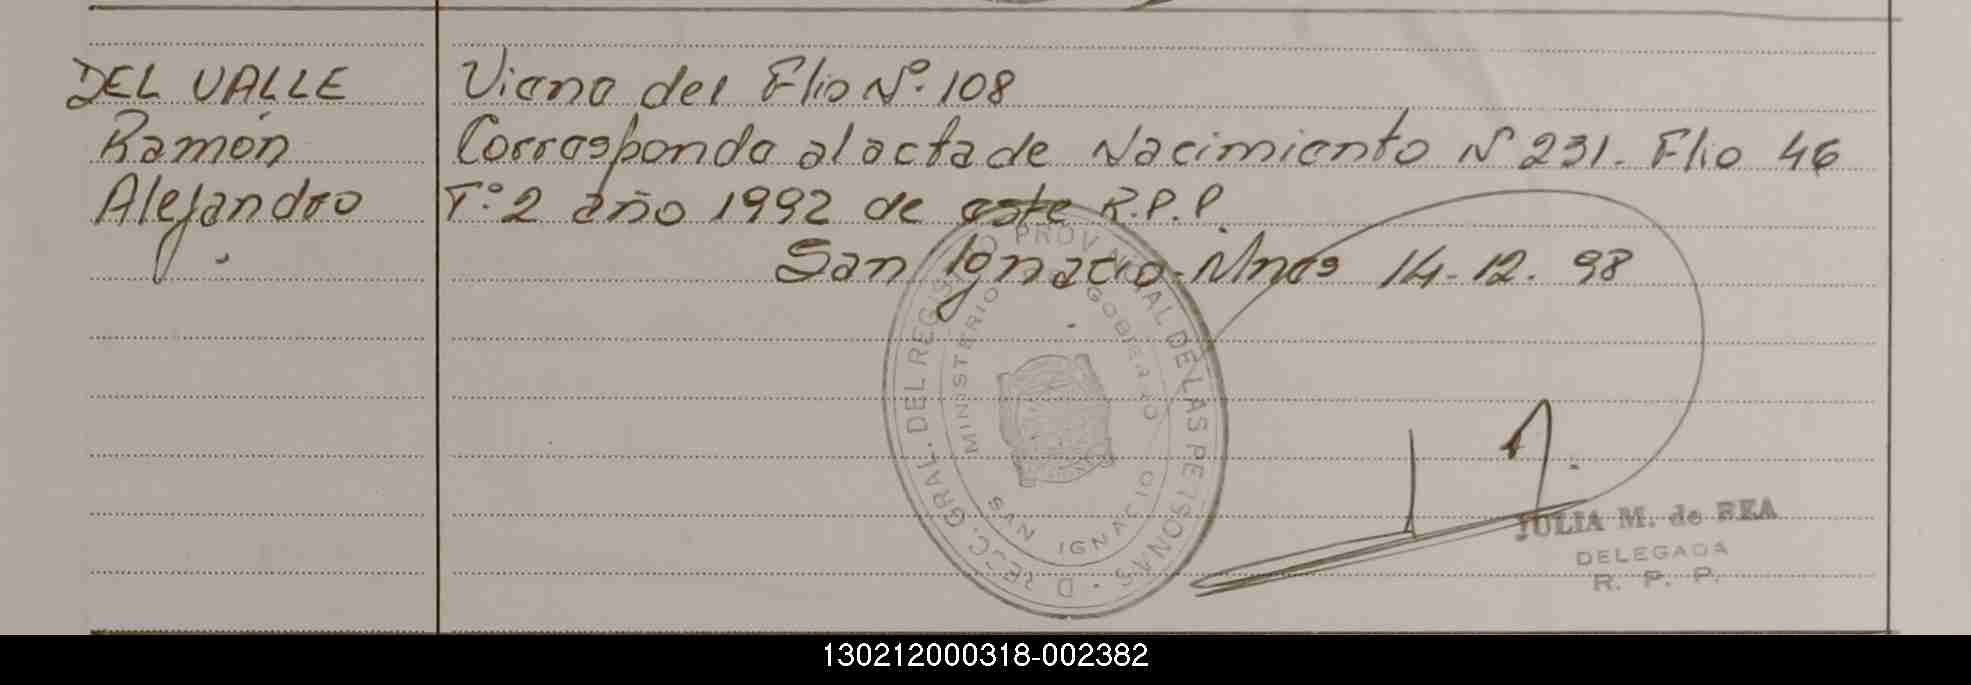 DEL VALLE
Ramón
Alejandro
Viene del Flio Nº. 108
Corresponde al acta de Nacimiento Nº 231. Flio 46
Tº. 2 año 1992 de este R.P.P.
San Ignacio. Mnes 14-12. 98
DIRECC. GRAL. DEL REGISTRO PROVINCIAL DE LAS PERSONAS
MINISTERIO GOBIERNO
SAN IGNACIO
JULIA M. de REA
DELEGADA
R. P. P.
130212000318-002382